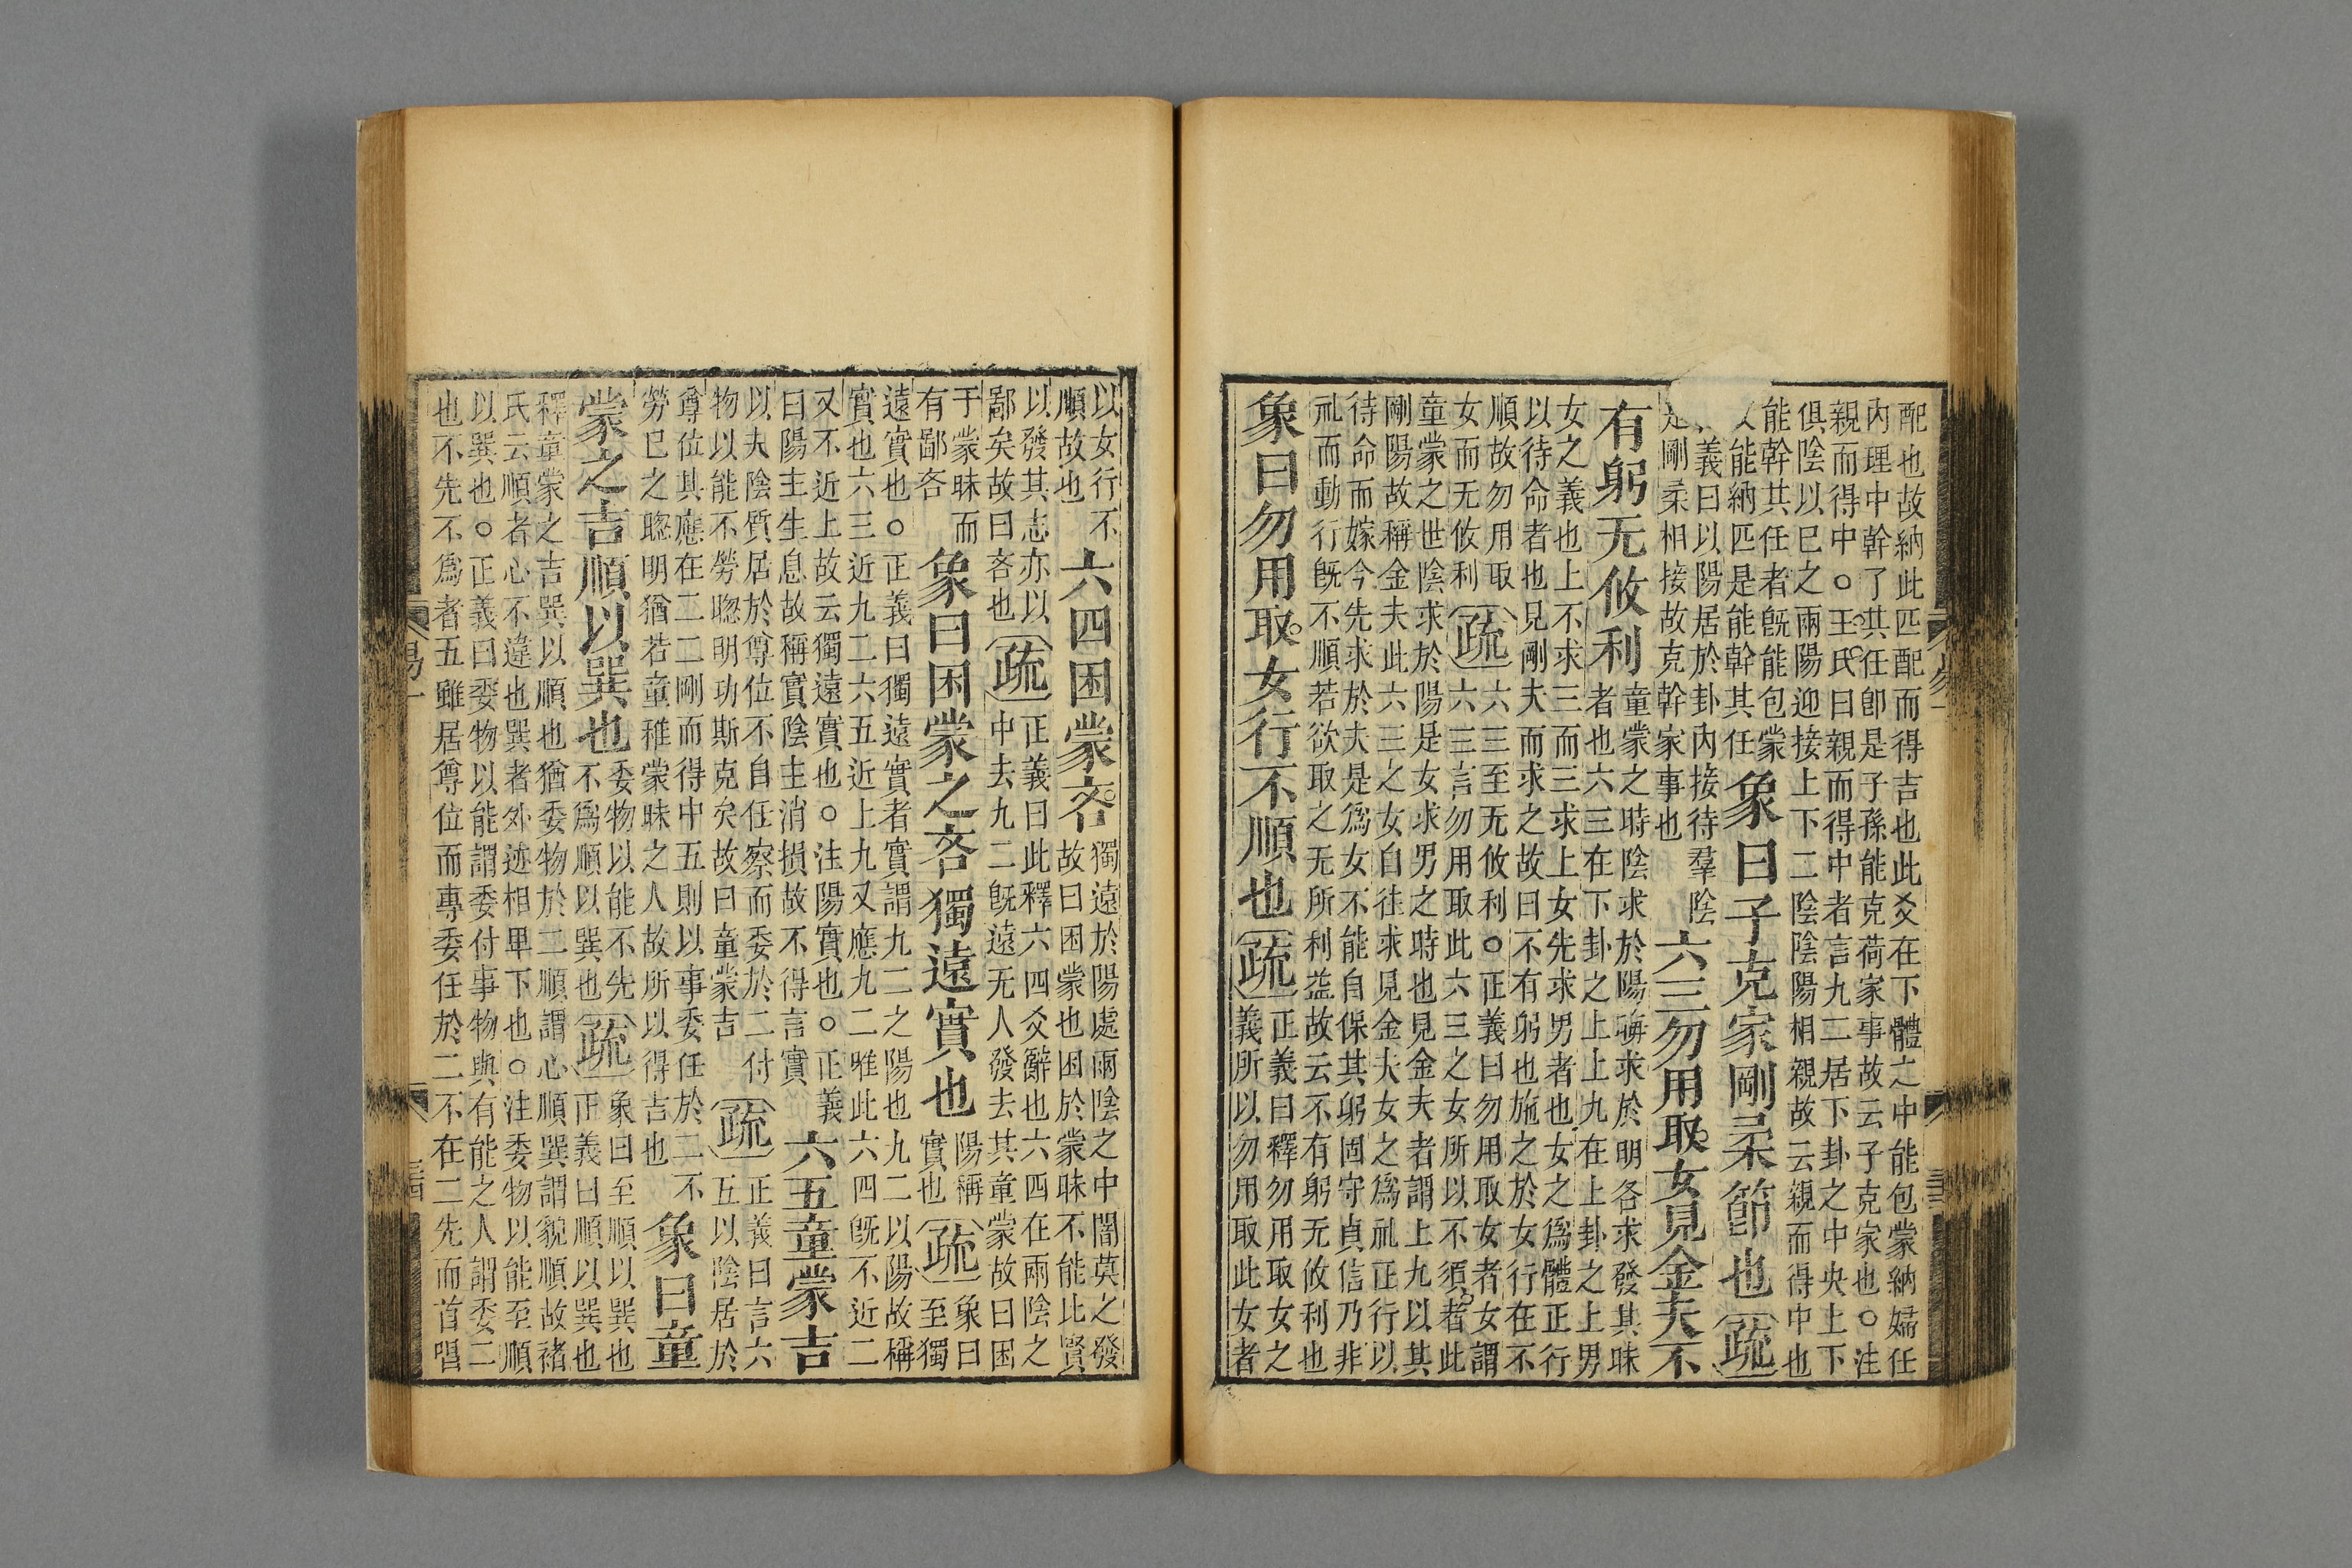 配也故納此匹配而得吉也此爻在下體之中能包蒙納婦任
内理中幹了其任卽是子孫能克荷家事故云子克家也○注
親而得中○王氏曰親而得中者言九二居下卦之中央上下
俱陰以巳之兩陽迎接上下二陰陰陽相親故云親而得中也
能幹其任者旣能包蒙
能納匹是能幹其任
象曰子克家剛柔節也疏
義曰以陽居於卦内接待羣陰
是剛柔相接故克幹家事也
六三勿用取女見金夫不
有躬无攸利
童蒙之時陰求於陽晦求於明各求發其昧
者也六三在下卦之上上九在上卦之上男
女之義也上不求三而三求上女先求男者也女之爲體正行
以待命者也見剛夫而求之故曰不有躬也施之於女行在不
順故勿用取
女而无攸利
疏
六三至无攸利○正義曰勿用取女者女謂
六三言勿用取此六三之女所以不須者此
童蒙之世陰求於陽是女求男之時也見金夫者謂上九以其
剛陽故稱金夫此六三之女自往求見金夫女之爲礼正行以
待命而嫁今先求於夫是爲女不能自保其躬固守貞信乃非
礼而動行旣不順若欲取之无所利益故云不有躬无攸利也
象曰勿用取女行不順也疏
正義曰釋勿用取女之
義所以勿用取此女者
以女行不
順故也
六四困蒙吝
獨遠於陽處兩陰之中闇莫之發
故曰困蒙也困於蒙昧不能比賢
以發其志亦以
鄙矣故曰吝也
疏
正義曰此釋六四爻辭也六四在兩陰之
中去九二旣遠无人發去其童蒙故曰困
于蒙昧而
有鄙吝
象曰困蒙之吝獨遠實也
陽稱
實也
疏
象曰
至獨
遠實也○正義曰獨遠實者實謂九二之陽也九二以陽故稱
實也六三近九二六五近上九又應九二唯此六四旣不近二
又不近上故云獨遠實也○注陽實也○正義
曰陽主生息故稱實陰主消損故不得言實
六五童蒙吉
以夫陰質居於尊位不自任察而委於二付
物以能不勞聦明功斯克矣故曰童蒙吉
疏
正義曰言六
五以陰居於
尊位其應在二二剛而得中五則以事委任於二不
勞巳之聦明猶若童稚蒙昧之人故所以得吉也
象曰童
蒙之吉順以巽也
委物以能不先
不爲順以巽也
疏
象曰至順以巽也
正義曰順以巽也
釋童蒙之吉巽以順也猶委物於二順謂心順巽謂貌順故褚
氏云順者心不違也巽者外迹相卑下也○注委物以能至順
以巽也○正義曰委物以能謂委付事物與有能之人謂委二
也不先不爲者五雖居尊位而專委任於二不在二先而首唱